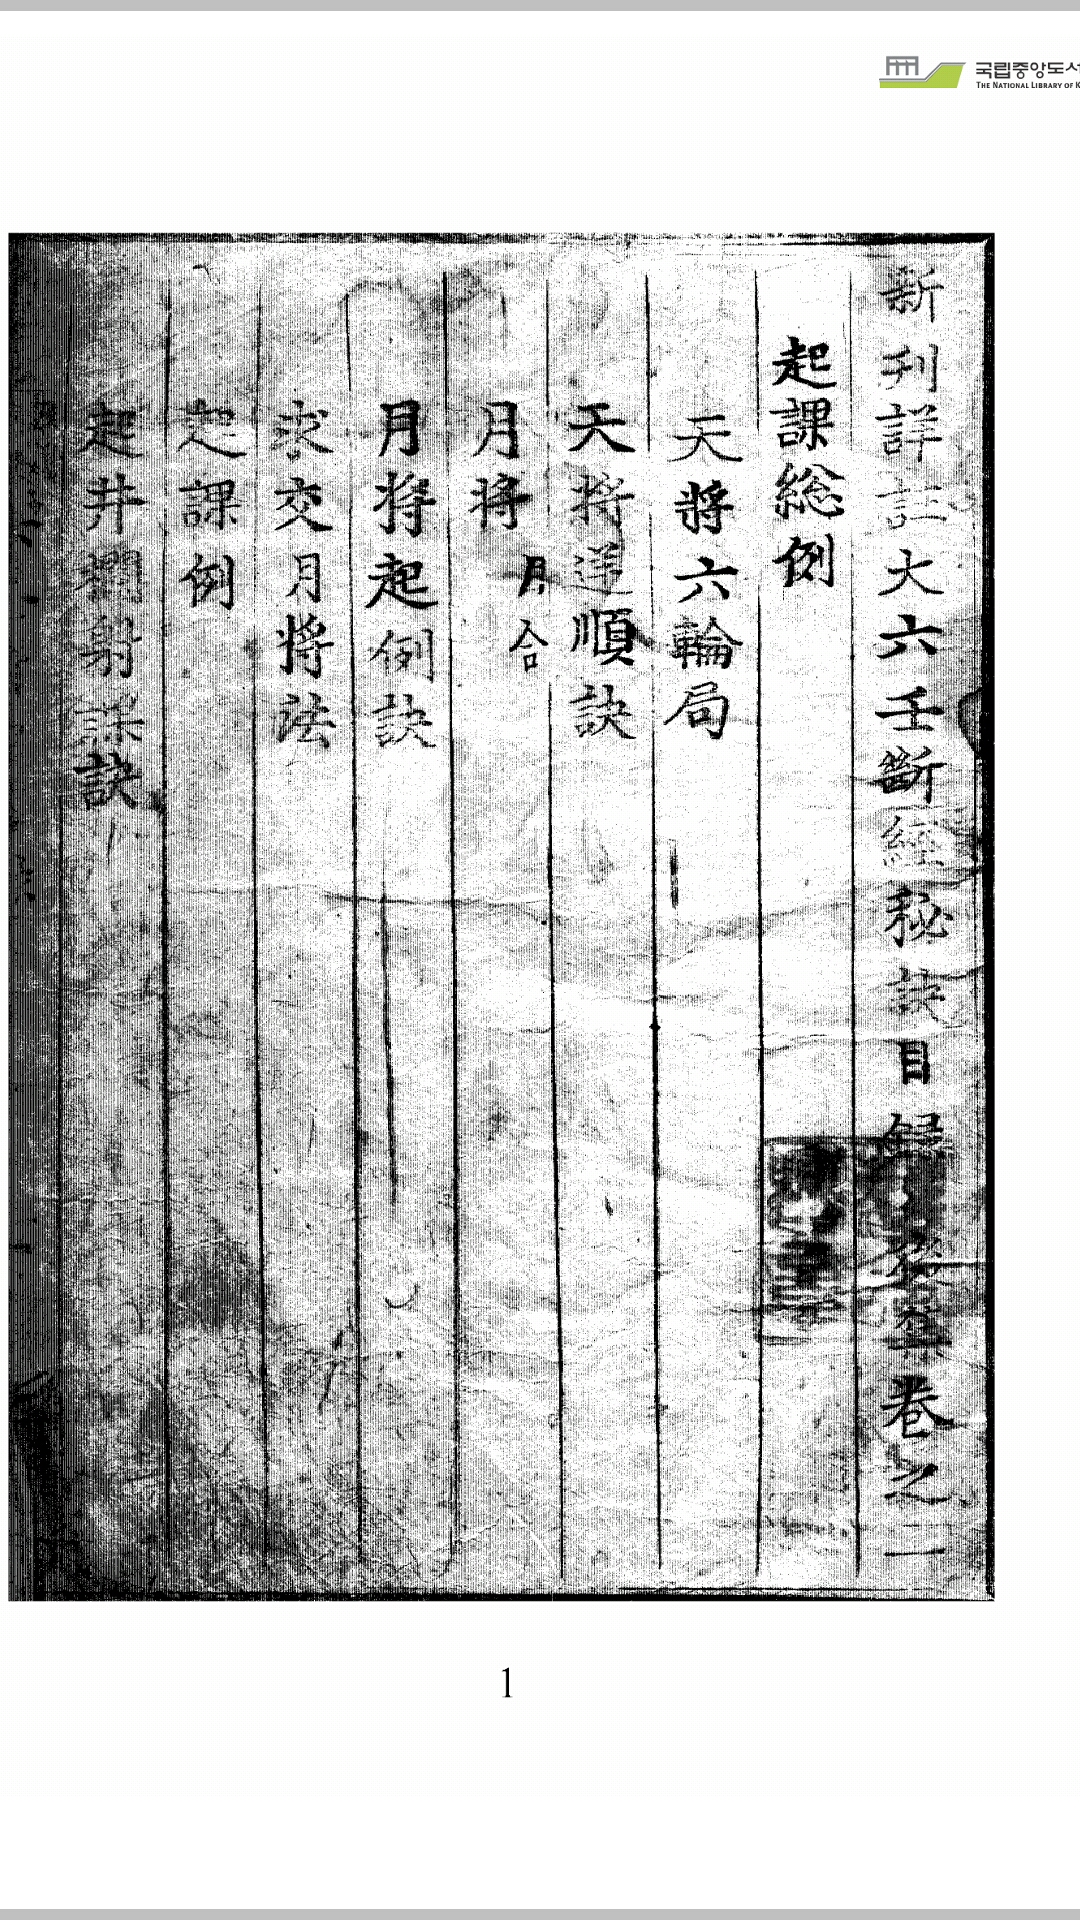 국립중앙도서
THE NATIONAL LIBRARY OF K
新刊詳註大六壬斷經秘訣目錄 卷之一
起課総例
天將六輪局
天將逆順訣
月將 月合
月將起例訣
求交月將法
起課例
起井欄射課訣
1